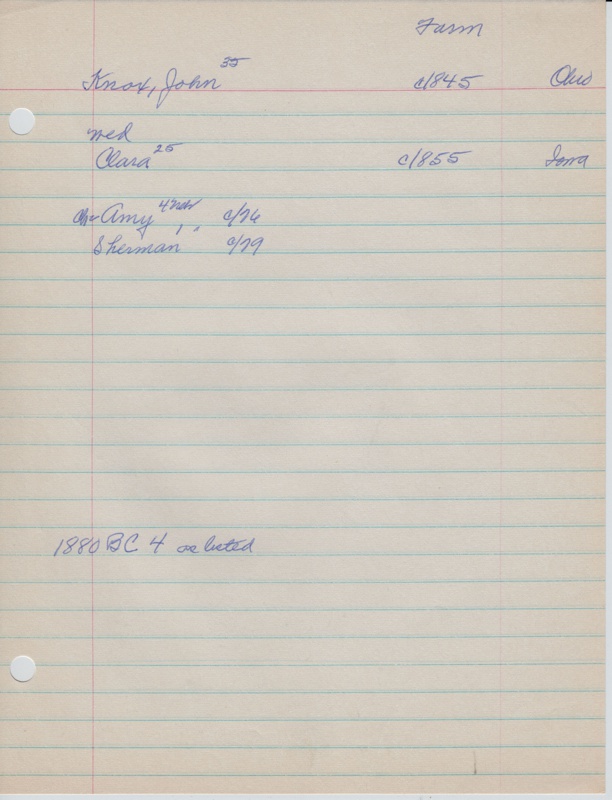 Farm
Knox, John 35 c/1845 Ohio
med
Clara 25 c/1855 Iowa
Chr Amy 4 Nebr c/76
Sherman 1 " c/79
1880 BC 4 as listed